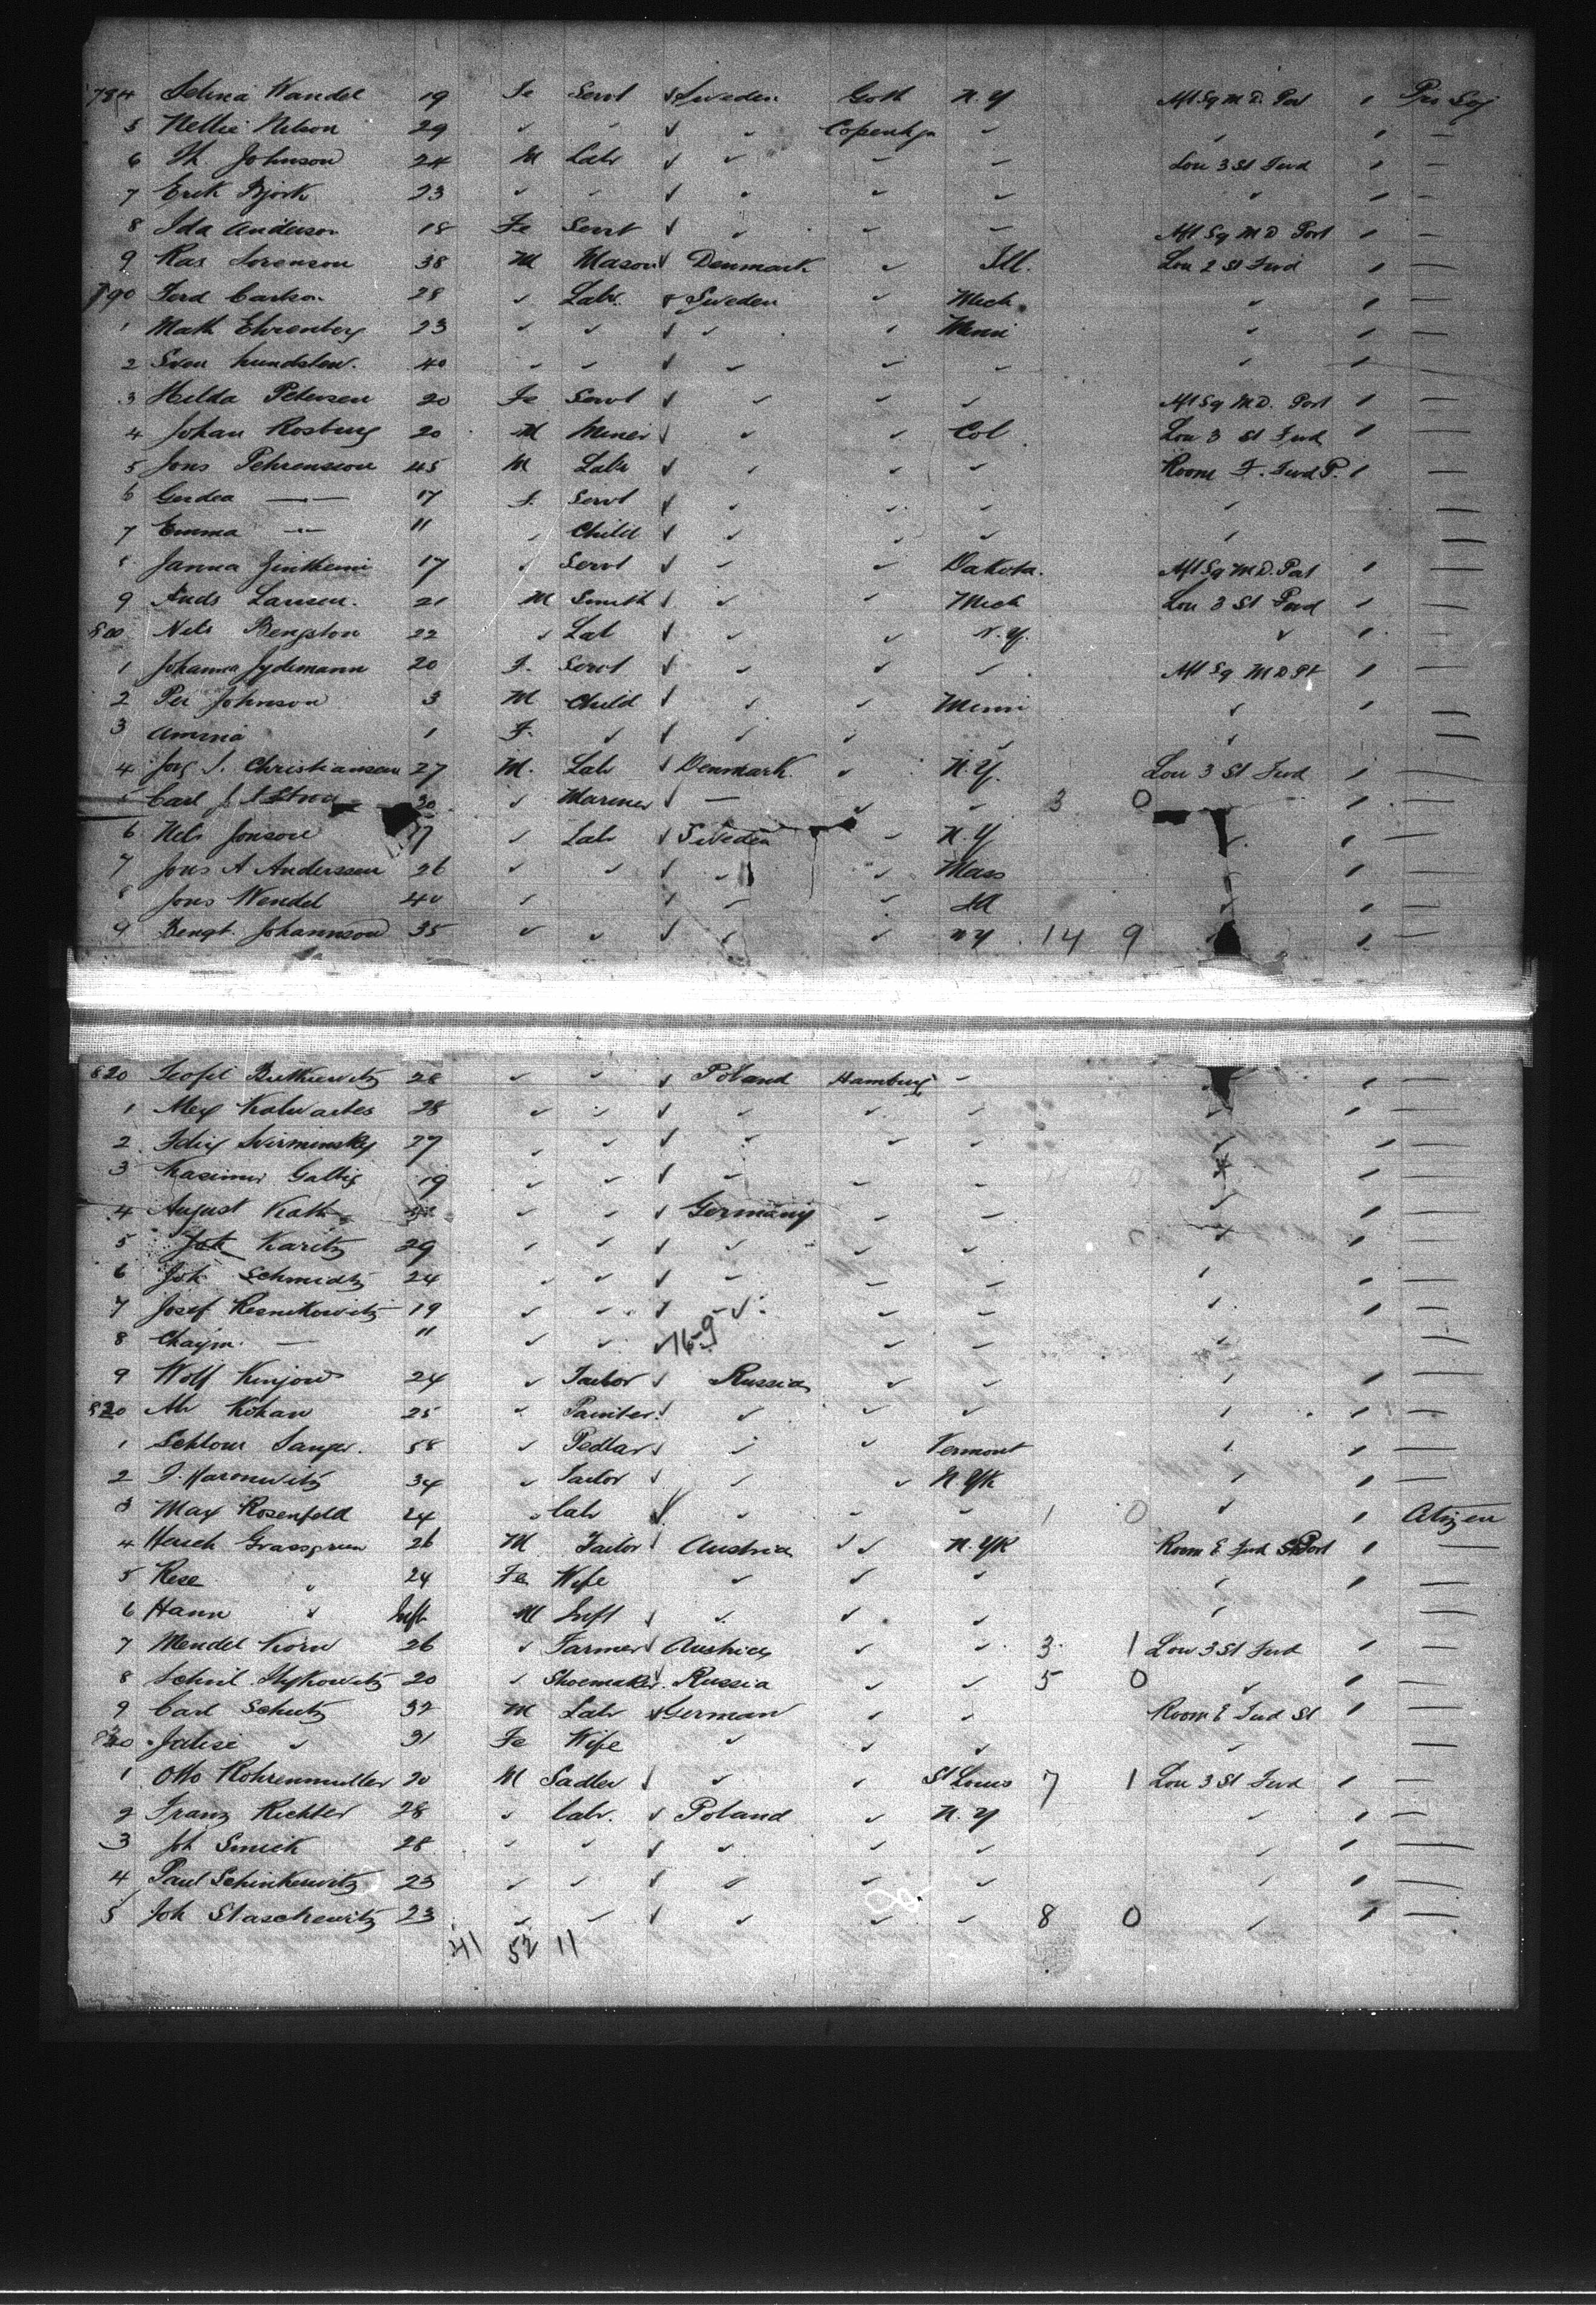 784 Selma Wandel 19 Fe Servt ✓ Sweden Goth N.Y Aft Sq M D. Port 1 Pro Soj
5 Nellie Nelson 29 ✓ ✓ ✓ ✓ Copenhgn ✓ ✓ 1 —
6 Th Johnson 24 M Labr ✓ ✓ ✓ ✓ Low 3 St Fwd 1 —
7 Erik Bjork 23 ✓ ✓ ✓ ✓ ✓ ✓ ✓ 1 —
8 Ida Anderson 18 Fe Servt ✓ ✓ ✓ ✓ Aft Sq M D Port 1 —
9 Ras Sorenson 38 M Mason ✓ Denmark ✓ Ill. Low 2 St Fwd 1 —
790 Ferd Carlson 28 ✓ Labr. ✓ Sweden ✓ Mich ✓ 1 —
1 Math Ehrenberg 23 ✓ ✓ ✓ ✓ ✓ Minni ✓ 1 —
2 Sven 40 ✓ ✓ ✓ ✓ ✓ ✓ ✓ 1 —
3 Hilda Petersen 20 Fe Servt ✓ ✓ ✓ ✓ Aft Sq M D. Port 1 —
4 Johan Rosburg 20 M Miner ✓ ✓ ✓ Col. Low 3 St Fwd 1 —
5 Jons Pehrensson 45 M Labr ✓ ✓ ✓ ✓ Room F. Fwd P. 1 —
6 Gerdea — 17 F. Servt ✓ ✓ ✓ ✓ ✓ —
7 Emma — 11 ✓ Child ✓ ✓ ✓ ✓ ✓ —
8 Janna 17 ✓ Servt ✓ ✓ ✓ Dakota. Aft Sq M D. Port 1 —
9 Ands Larsen. 21 M Smith ✓ ✓ ✓ Mich Low 3 St Fwd 1 —
800 Nels Bengston 22 ✓ Lab ✓ ✓ ✓ N.Y. ✓ 1 —
1 Johanna Sydemann 20 F. Servt ✓ ✓ ✓ ✓ Aft Sq. M D Pt 1 —
2 Per Johnson 3 M Child ✓ ✓ ✓ Minni ✓ 1 —
3 Amina 1 F. ✓ ✓ ✓ ✓ ✓ ✓ —
4 Jorg J. Christiansen 27 M. Labr ✓ Denmark. ✓ N.Y. Low 3 St Fwd 1 —
5 Carl 30 ✓ Mariner ✓ — ✓ ✓ 3 0 1 —
6 Nels Jonson 17 ✓ Labr ✓ Sweden ✓ N.Y ✓ 1 —
7 Jons A Anderssen 26 ✓ ✓ ✓ ✓ ✓ Mass ✓ 1 —
8 Jons Wendel 40 ✓ ✓ ✓ ✓ ✓ ✓ 1 —
9 Bengt. Johannson 35 ✓ ✓ ✓ ✓ ✓ NY 14 9 1 —
820 Teofil Butkiewitz 28 ✓ ✓ ✓ Poland Hamburg ✓ 1 —
1 Alex 28 ✓ ✓ ✓ ✓ ✓ ✓ ✓ 1 —
2 27 ✓ ✓ ✓ ✓ ✓ ✓ ✓ 1 —
3 Kasimir 19 ✓ ✓ ✓ ✓ ✓ ✓ ✓ 1 —
4 August ✓ ✓ ✓ Germany ✓ ✓ ✓ 1 —
5 Joh Karitz 29 ✓ ✓ ✓ ✓ ✓ ✓ ✓ 1 —
6 Joh Schmidtz 24 ✓ ✓ ✓ ✓ ✓ ✓ ✓ 1 —
7 Josef Resnikowitz 19 ✓ ✓ ✓ ✓ ✓ ✓ ✓ 1 —
8 Chaym. — 11 ✓ ✓ ✓ 16-9 ✓ ✓ ✓ —
9 Wolf 24 ✓ Tailor ✓ Russia ✓ ✓ ✓ 1 —
820 Ab Kohan 25 ✓ Painter ✓ ✓ ✓ ✓ ✓ 1 —
1 Schlour 58 ✓ Pedlar ✓ ✓ ✓ Vermont ✓ 1 —
2 34 ✓ Tailor ✓ ✓ ✓ N. Yk ✓ 1 —
3 Max Rosenfeld 24 ✓ Labr ✓ ✓ ✓ ✓ 1 0 ✓ 1 Citizen
4 Hersch Grassgrun 26 M Tailor ✓ Austria ✓ ✓ N. Yk Room E Fwd St Port 1 —
5 Rese ✓ 24 Fe Wife ✓ ✓ ✓ ✓ 1 —
6 Hann ✓ Inft M Inft ✓ ✓ ✓ ✓ ✓ —
7 Mendel Korn 26 ✓ Farmer ✓ Austria ✓ ✓ 3 1 Low 3 St Fwd 1 —
8 20 ✓ Shoemaker ✓ Russia ✓ ✓ 5 0 ✓ 1 —
9 Carl Schutz 32 M Labr ✓ German ✓ ✓ Room E Fwd St 1 —
830 ✓ 31 Fe Wife ✓ ✓ ✓ ✓ —
1 Otto Rohrenmuller 20 M Sadler ✓ ✓ ✓ St Louis 7 1 Low 3 St Fwd 1 —
2 Franz Richter 28 ✓ Labr. ✓ Poland ✓ N. Y ✓ 1 —
3 Joh Smick 28 ✓ ✓ ✓ ✓ ✓ ✓ ✓ 1 —
4 Paul Schinkewitz 23 ✓ ✓ ✓ ✓ ✓ ✓ ✓ 1 —
5 Joh Staschewitz 23 ✓ ✓ ✓ ✓ ✓ ✓ 8 0 ✓ 1 —
41 52 11